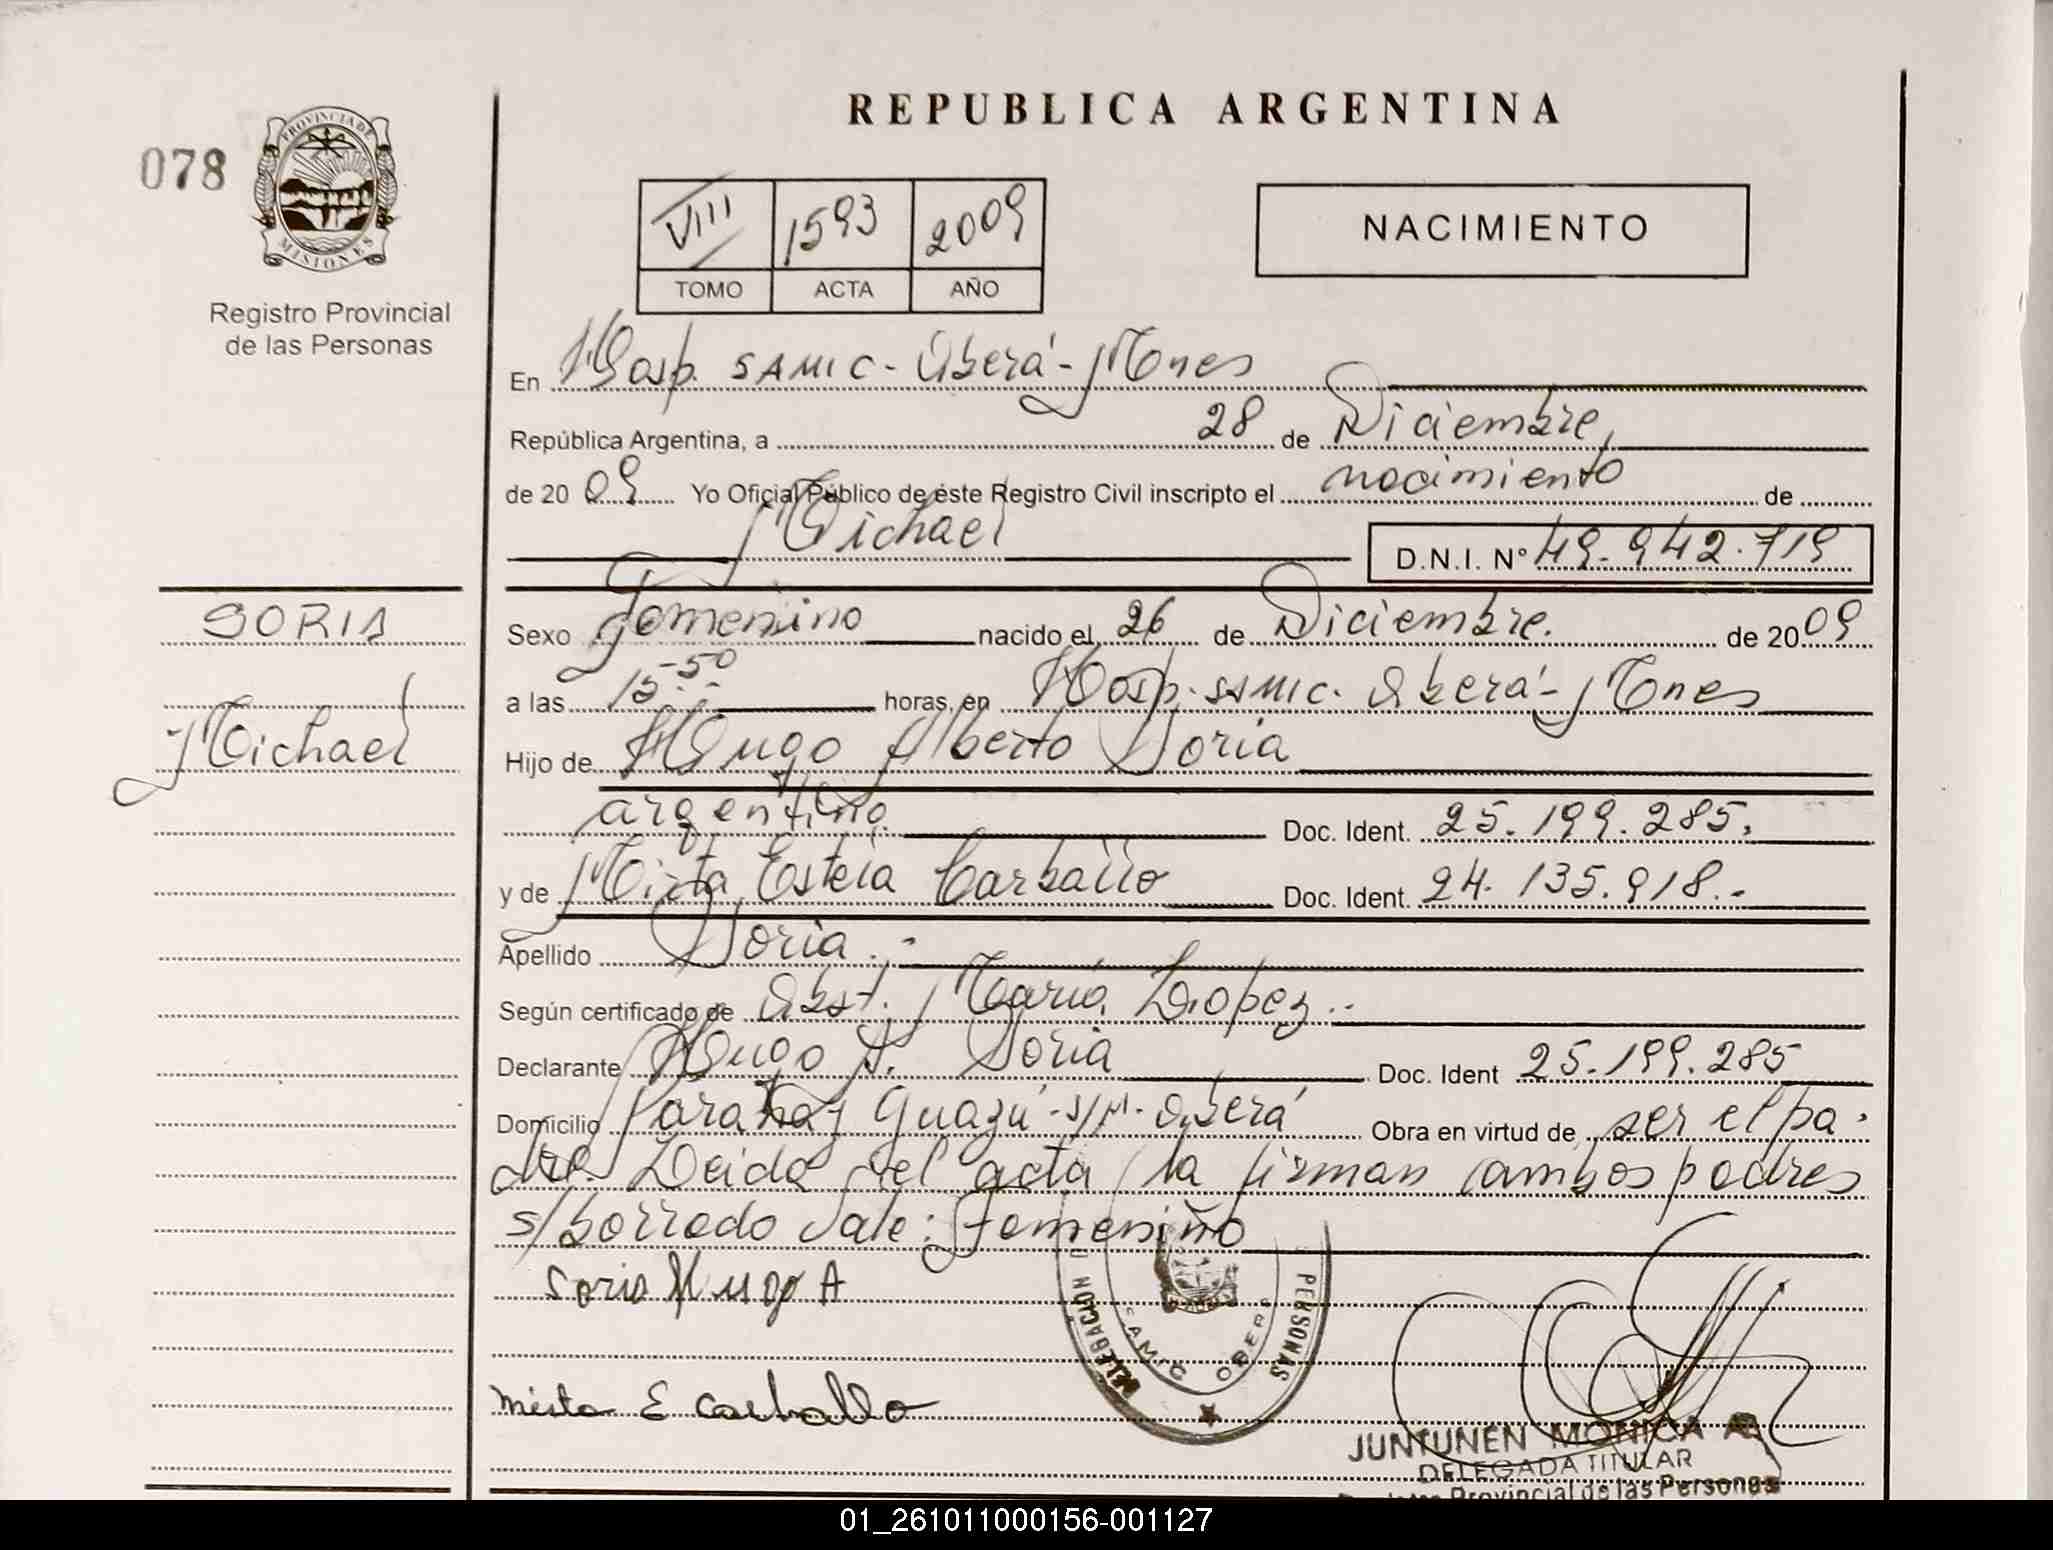 REPUBLICA ARGENTINA
078
PROVINCIA DE
MISIONES
Registro Provincial
de las Personas
VIII 1593 2009
TOMO ACTA AÑO
NACIMIENTO
En Hosp. SAMIC - Oberá - Mnes
República Argentina, a 28 de Diciembre,
de 20 09 Yo Oficial Público de éste Registro Civil inscripto el nacimiento de
Michael
D.N.I. Nº 49.942.719
SORIA
Michael
Sexo Femenino nacido el 26 de Diciembre. de 20 09
a las 15:50 horas, en Hosp. SAMIC. Oberá - Mnes
Hijo de Hugo Alberto Soria
argentino Doc. Ident. 25.199.285.
y de Mirta Estela Carballo Doc. Ident. 24.135.918.-
Apellido Soria.-
Según certificado de Obst. María Lopez.-
Declarante Hugo A. Soria Doc. Ident 25.199.285
Domicilio Guazú - s/nº - Oberá Obra en virtud de ser el pa-
dre. Leida el acta la firman ambos padres
s/borrado Vale: Femenino
Soria Hugo A
Mirta E Carballo
DELEGACION PERSONAS
SAMIC OBERA
JUNTUNEN MONICA
DELEGADA TITULAR
Registro Provincial de las Personas
01_261011000156-001127